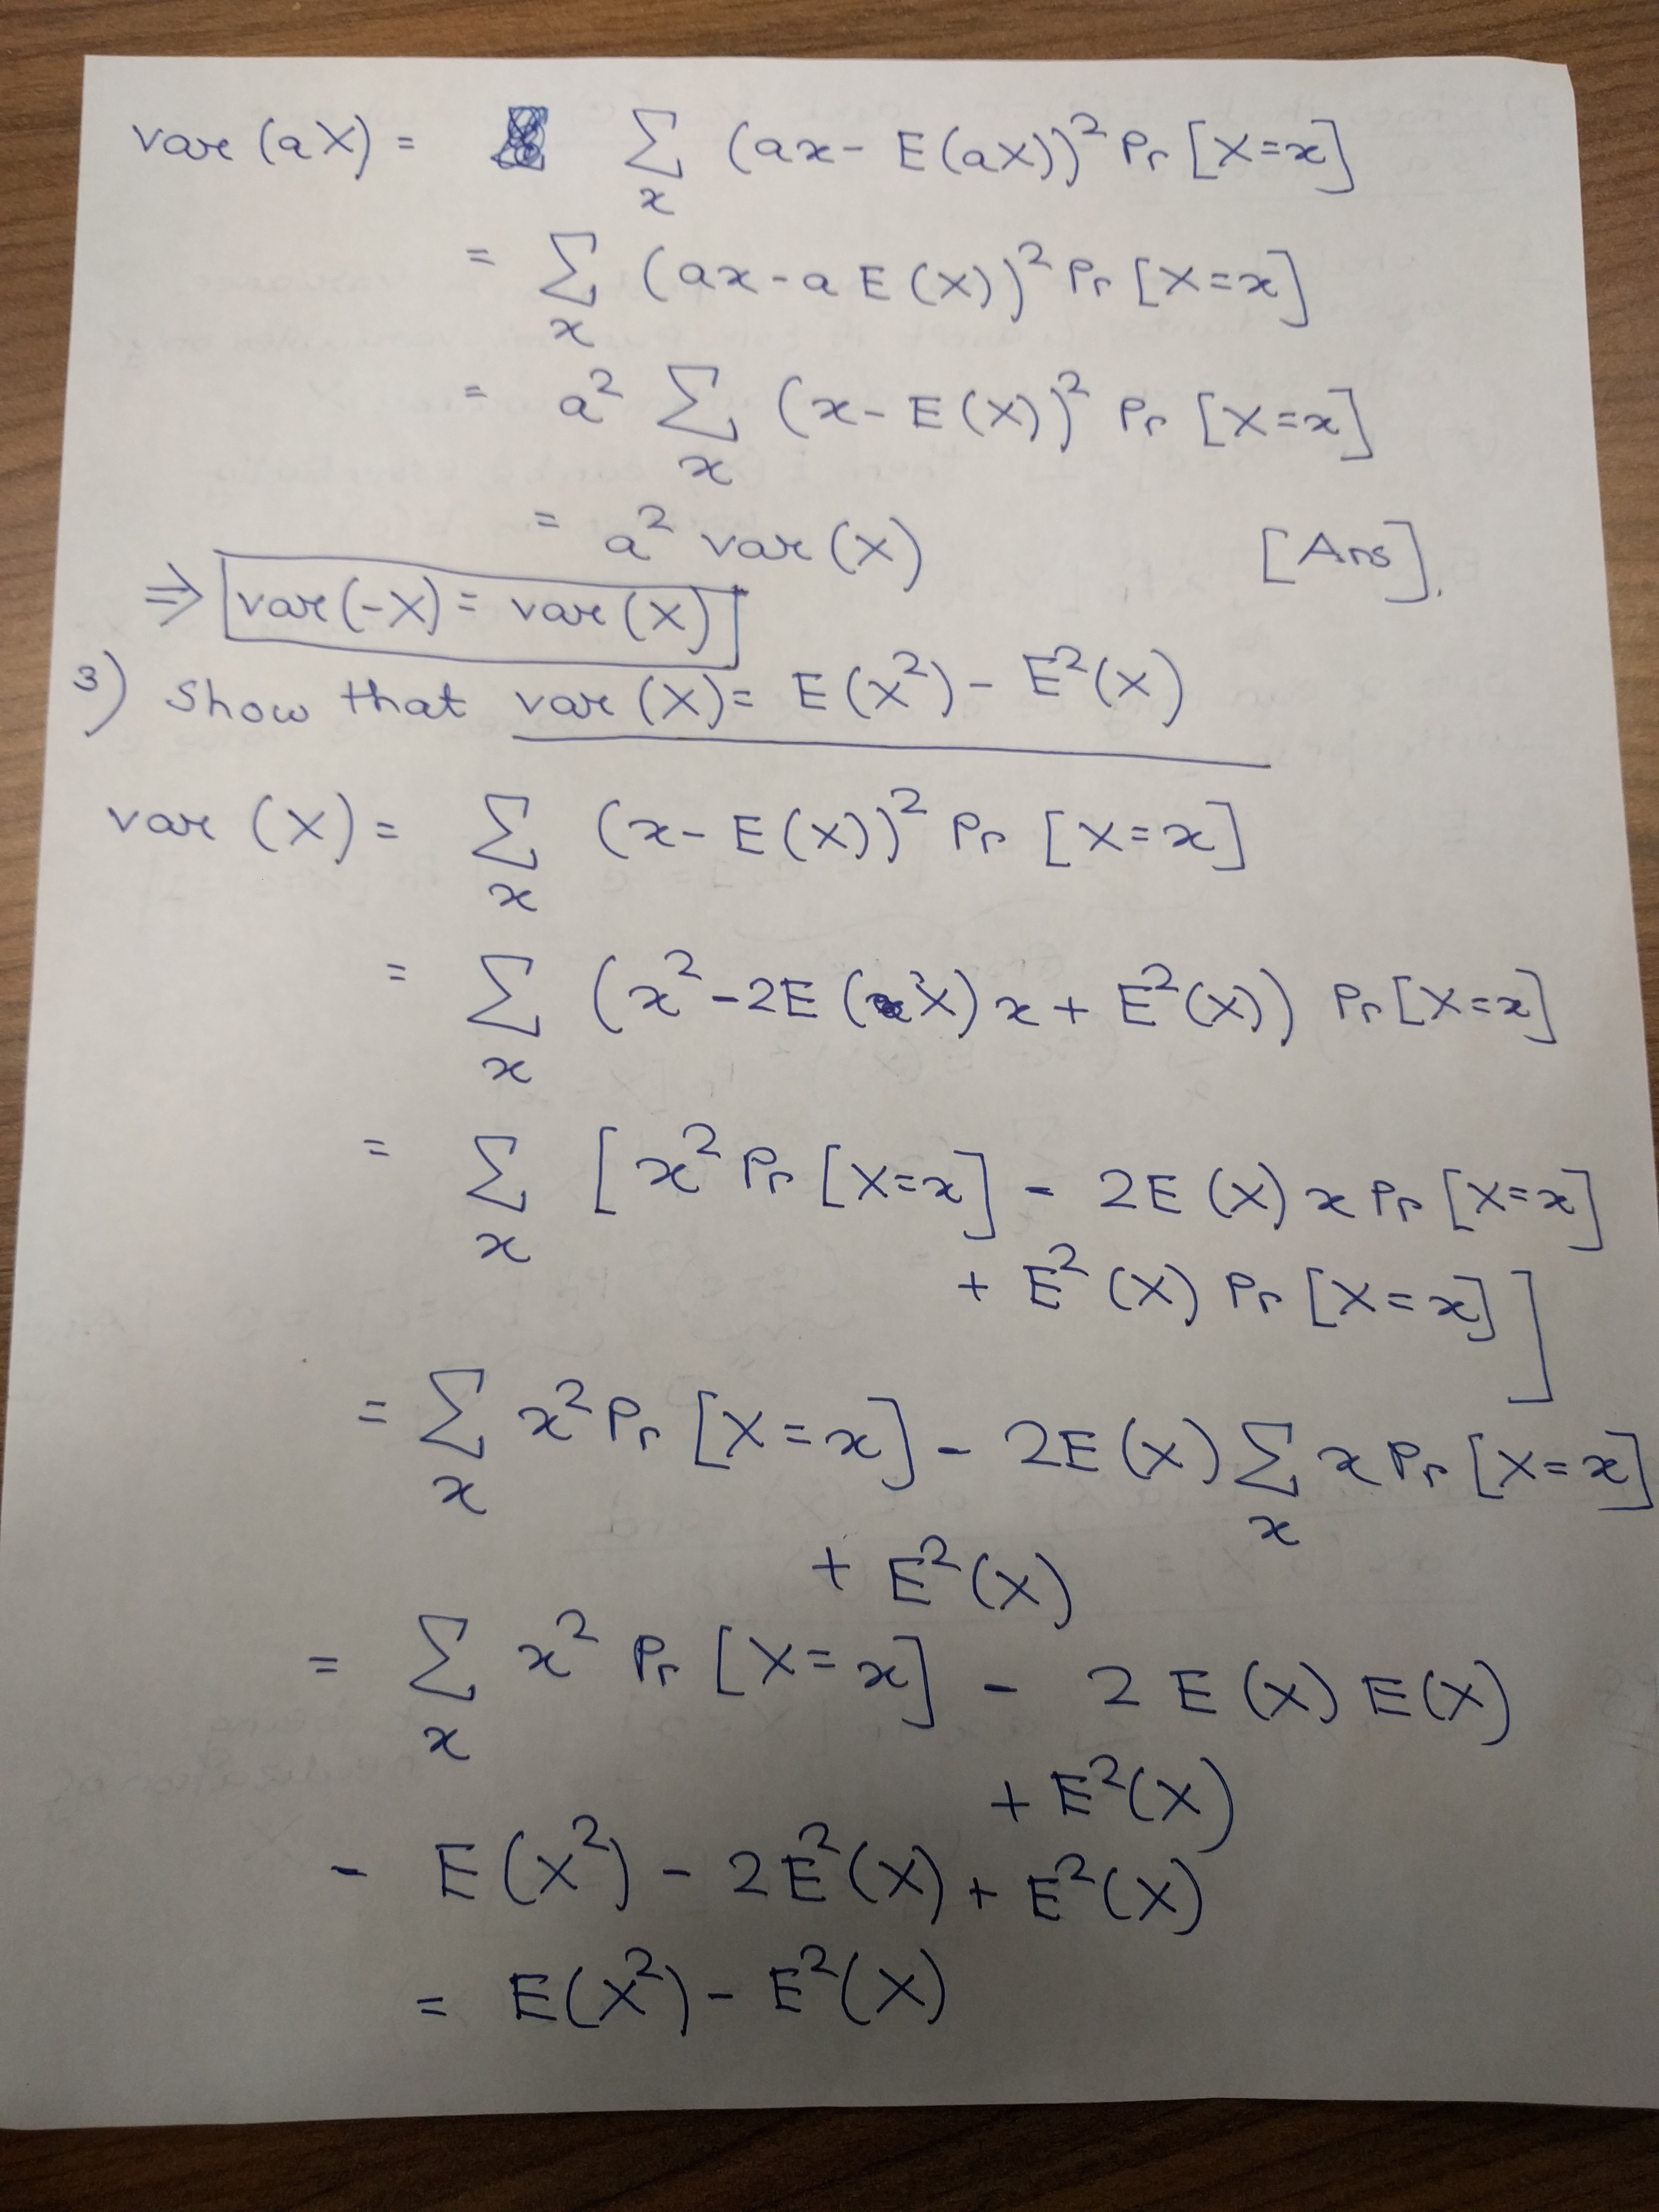 var (aX) = Σ_x (ax - E(aX))² Pr [X=x]
= Σ_x (ax - a E(X))² Pr [X=x]
= a² Σ_x (x - E(X))² Pr [X=x]
= a² var (X) [Ans].
⇒ var(-X) = var(X)
3) Show that var (X) = E(X²) - E²(X)
var (X) = Σ_x (x - E(X))² Pr [X=x]
= Σ_x (x² - 2E(X) x + E²(X)) Pr [X=x]
= Σ_x [x² Pr [X=x] - 2E(X) x Pr [X=x]
+ E²(X) Pr [X=x]]
= Σ_x x² Pr [X=x] - 2E(X) Σ_x x Pr [X=x]
+ E²(X)
= Σ_x x² Pr [X=x] - 2 E(X) E(X)
+ E²(X)
- E(X²) - 2E²(X) + E²(X)
= E(X²) - E²(X)